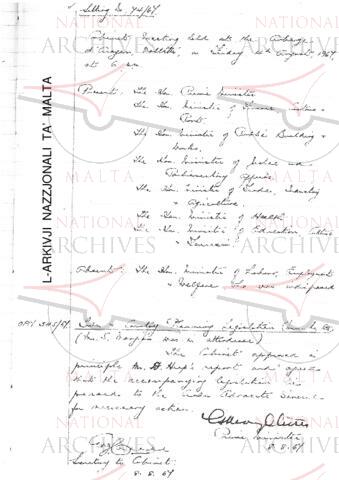 Sitting No. 74/67
Cabinet Meeting held at the Auberge
d'Aragon Valletta, on Friday August, 1967
at 6 p.m.
Present: The Hon. Prime Minister
The Hon. Minister of Finance, Customs &
Port.
The Hon. Minister of Public Building &
Works.
The Hon. Minister of Justice and
Parliamentary Affairs.
The Hon. Minister of Trade, Industry
& Agriculture.
The Hon. Minister of Health
The Hon. Minister of Education, Culture
& Tourism.
Absent: The Hon. Minister of Labour, Employment
& Welfare who was indisposed
OPM 345/67. Town & Country Planning Legislation
(Mr. S. Mangion was in attendance)
The Cabinet approved in
principle Mr. Heap's report and agreed
that the accompanying legislation be
passed to the Crown Advocate General
for necessary action.
Prime Minister
8.8.67
Secretary to Cabinet
8.8.67
L-ARKIVJI NAZZJONALI TA' MALTA
NATIONAL
ARCHIVES
MALTA